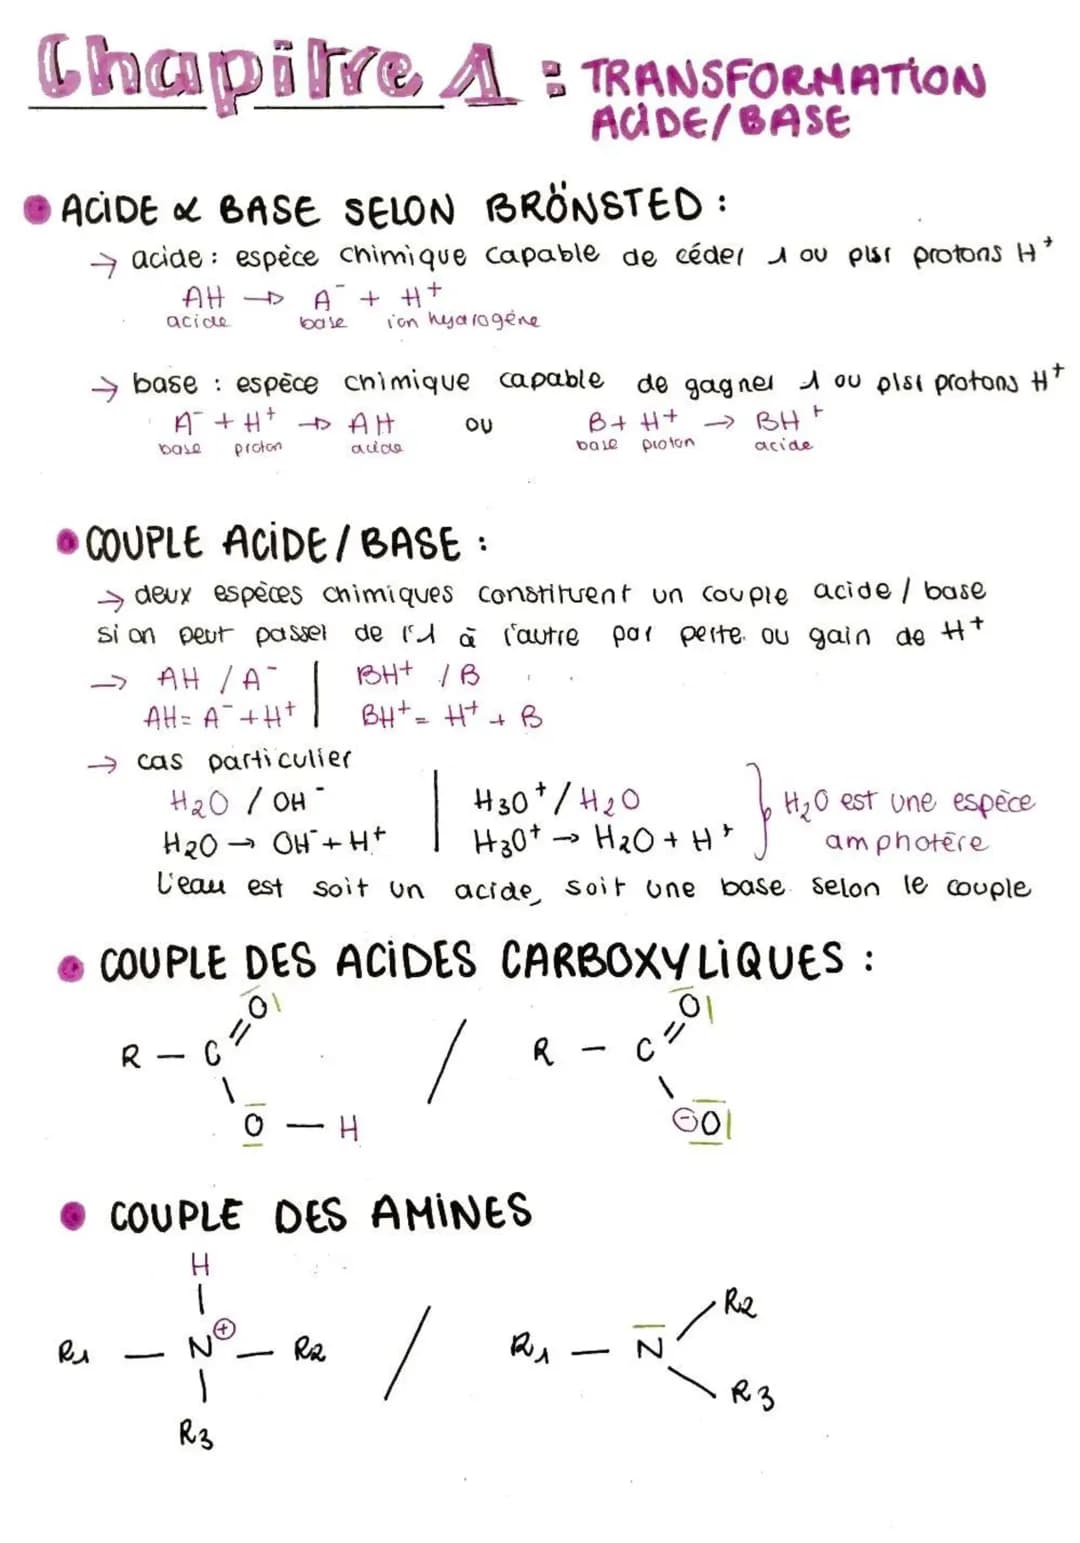 Chapitre 1 : TRANSFORMATION
ACIDE/BASE
ACIDE & BASE SELON BRÖNSTED :
→ acide : espèce chimique capable de céder 1 ou plsr protons H⁺
AH → A⁻ + H⁺
acide base ion hydrogène
→ base : espèce chimique capable de gagner 1 ou plsr protons H⁺
A⁻ + H⁺ → AH ou B + H⁺ → BH⁺
base proton acide base proton acide
COUPLE ACIDE / BASE :
→ deux espèces chimiques constituent un couple acide / base
si on peut passer de l'1 à l'autre par perte ou gain de H⁺
→ AH / A⁻ | BH⁺ / B
AH = A⁻ + H⁺ | BH⁺ = H⁺ + B
→ cas particulier
H₂O / OH⁻ | H₃O⁺ / H₂O } H₂O est une espèce
H₂O → OH⁻ + H⁺ | H₃O⁺ → H₂O + H⁺ amphotère
L'eau est soit un acide, soit une base selon le couple
COUPLE DES ACIDES CARBOXYLIQUES :
O / O
R — C R — C
O — H ⊖O
COUPLE DES AMINES
H
R2
R1 — N⊕ — R2 / R1 — N
R3
R3